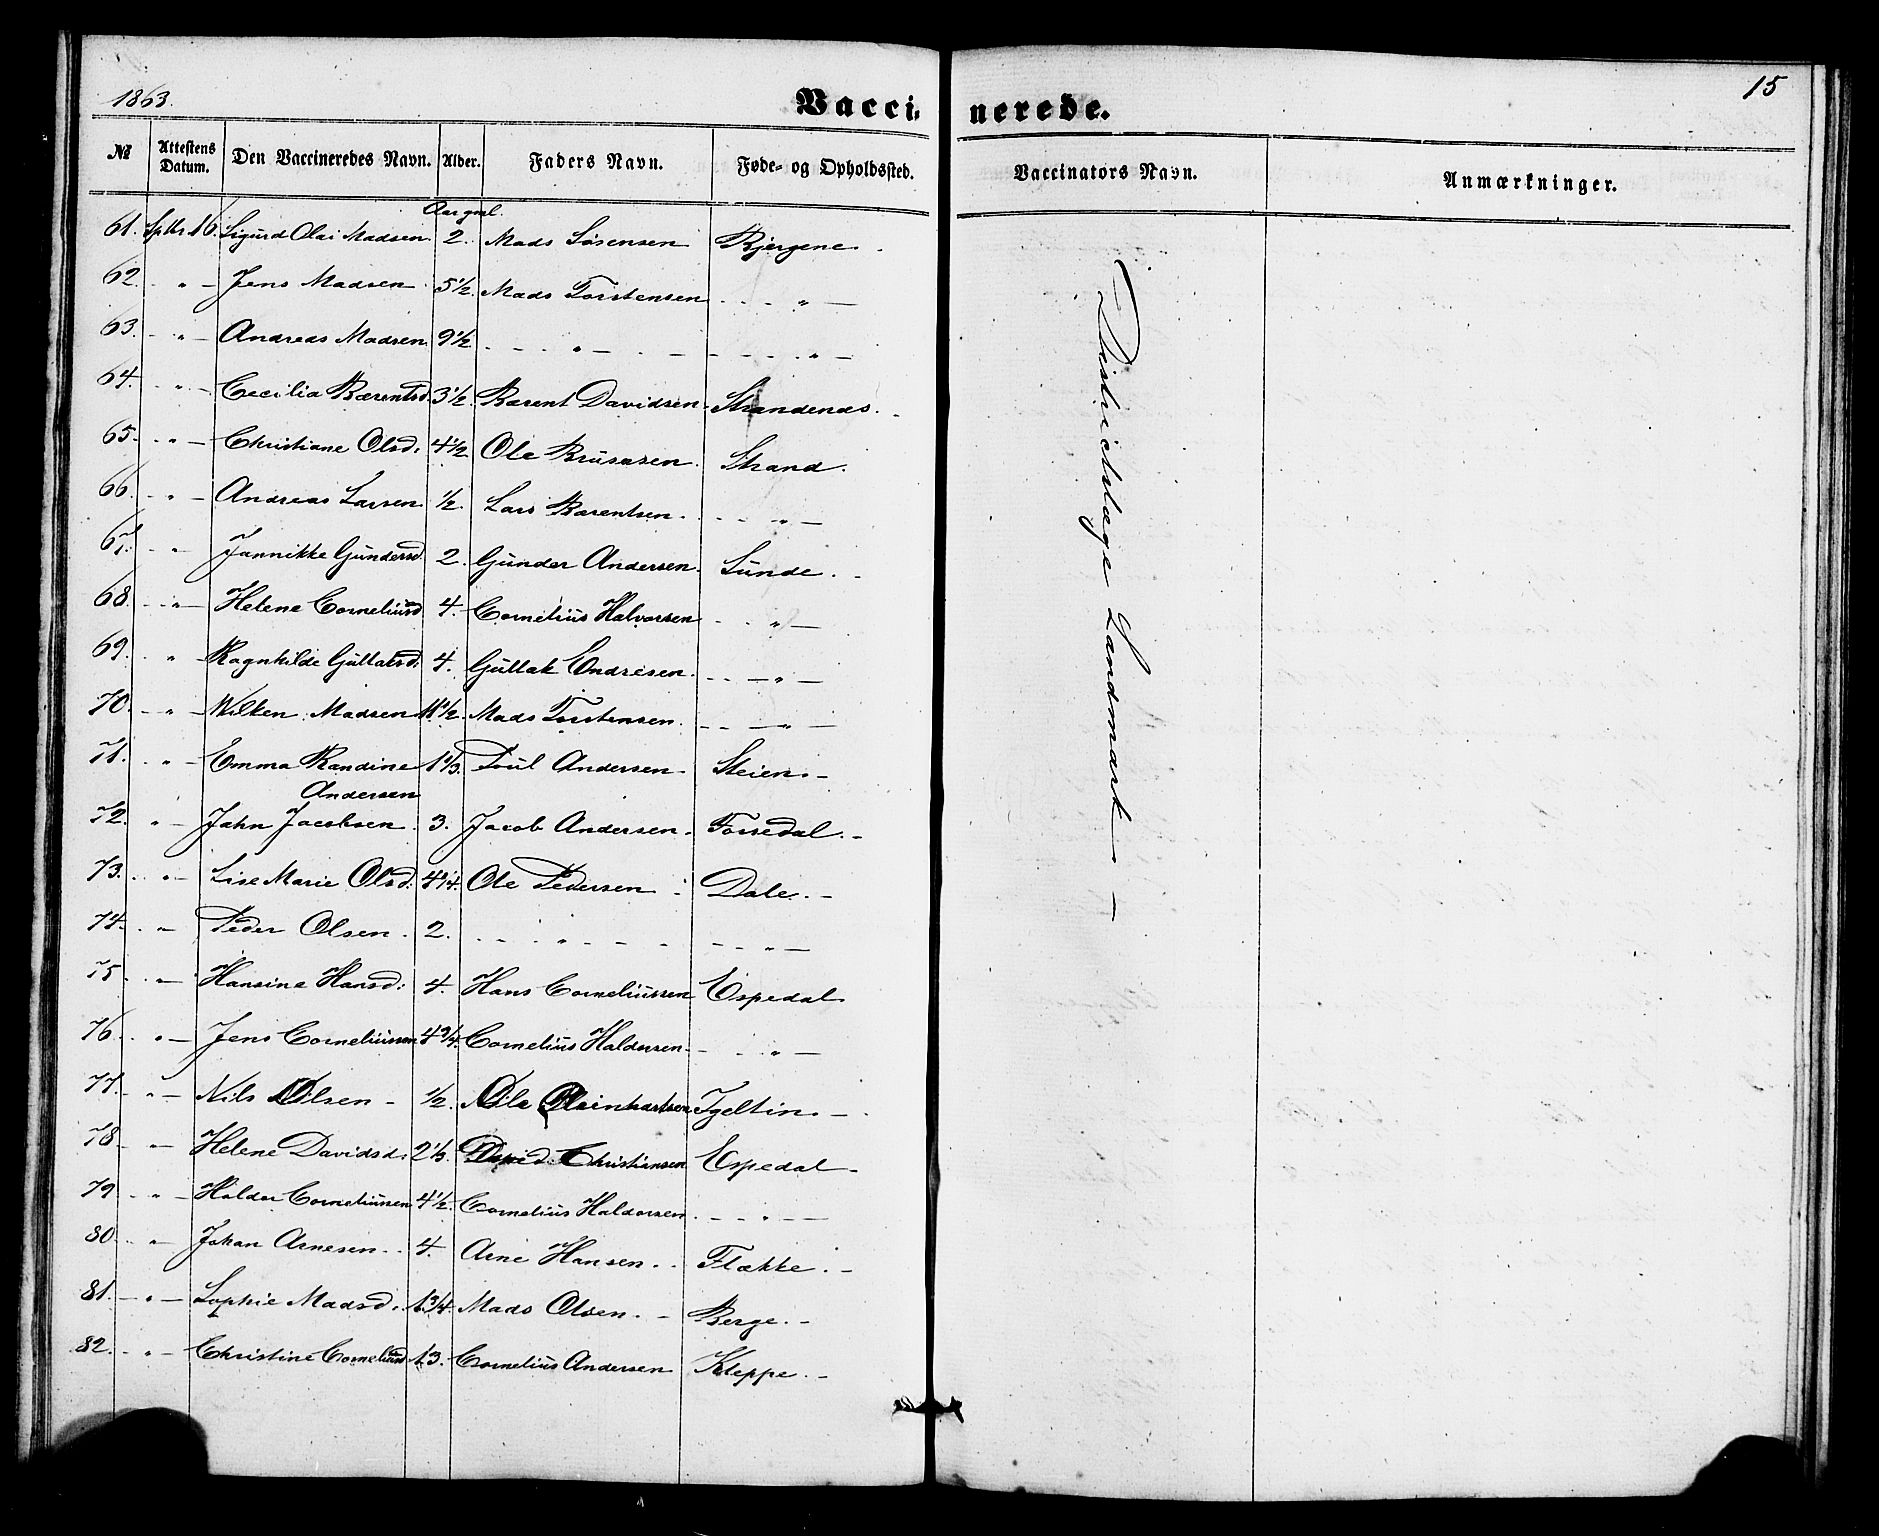 1863.
Vaccinerede.
15
№ Attestens Datum. Den Vaccineredes Navn. Alder. Faders Navn. Føde- og Opholdssted. Vaccinators Navn. Anmærkninger.
Aar gml.
61. Sptbr. 16. Sigurd Olai Madsen 2. Mads Sørensen Bjergene.
62. - " - Jens Madsen 5 1/2. Mads Torstensen - - " -
63. - " - Andreas Madsen 9 1/2. - - " - - - - " -
64. - " - Cecilia Bærentsd. 3 1/2. Bærent Davidsen Strandenæs. -
65. - " - Christiane Olsd. 4 1/2 Ole Brusesen Strand.
66. - " - Andreas Larsen 1/2. Lars Bærentsen. - - " -
67. - " Jannikke Gundersd. 2. Gunder Andersen. Sunde. -
68. - " - Helene Corneliusd 4. Cornelius Halvorsen - - " -
69. - " Ragnhilde Gullaksd. 4. Gullak Endresen. - - " -
70. - " - Wilken Madsen 11 1/2. Mads Torstensen. - - " -
71. - " - Emma Randine Andersen 1 1/3. Poul Andersen - Steien. -
72. - " - John Jacobsen. 3. Jacob Andersen. Fossedal. -
73. - " - Lise Marie Olsd. 4 1/4. Ole Pedersen Dale. -
74. - " - Peder Olsen. 2. - - " - - - - " -
75 - " - Hansine Hansd: 4. Hans Corneliussen Espedal
76. - " - Jens Corneliussen 4 3/4. Cornelius Haldorsen - - " -
77. - " - Nils Olsen - 1/2. Ole Reinhartsen Tgeltin. -
78. - " - Helene Davidsd. 2 1/3. David Christiansen Espedal -
79 - " - Haldor Corneliussen 4 1/2. Cornelius Haldorsen - - " -
80. - " - Johan Arnesen - 4. Arne Hansen. - Flække. -
81. - " - Sophie Madsd. 1 3/4. Mads Olsen. - Berge. -
82. - " - Christine Corneliusd 13. Cornelius Andersen Kleppe. -
Districtslæge Landmark -